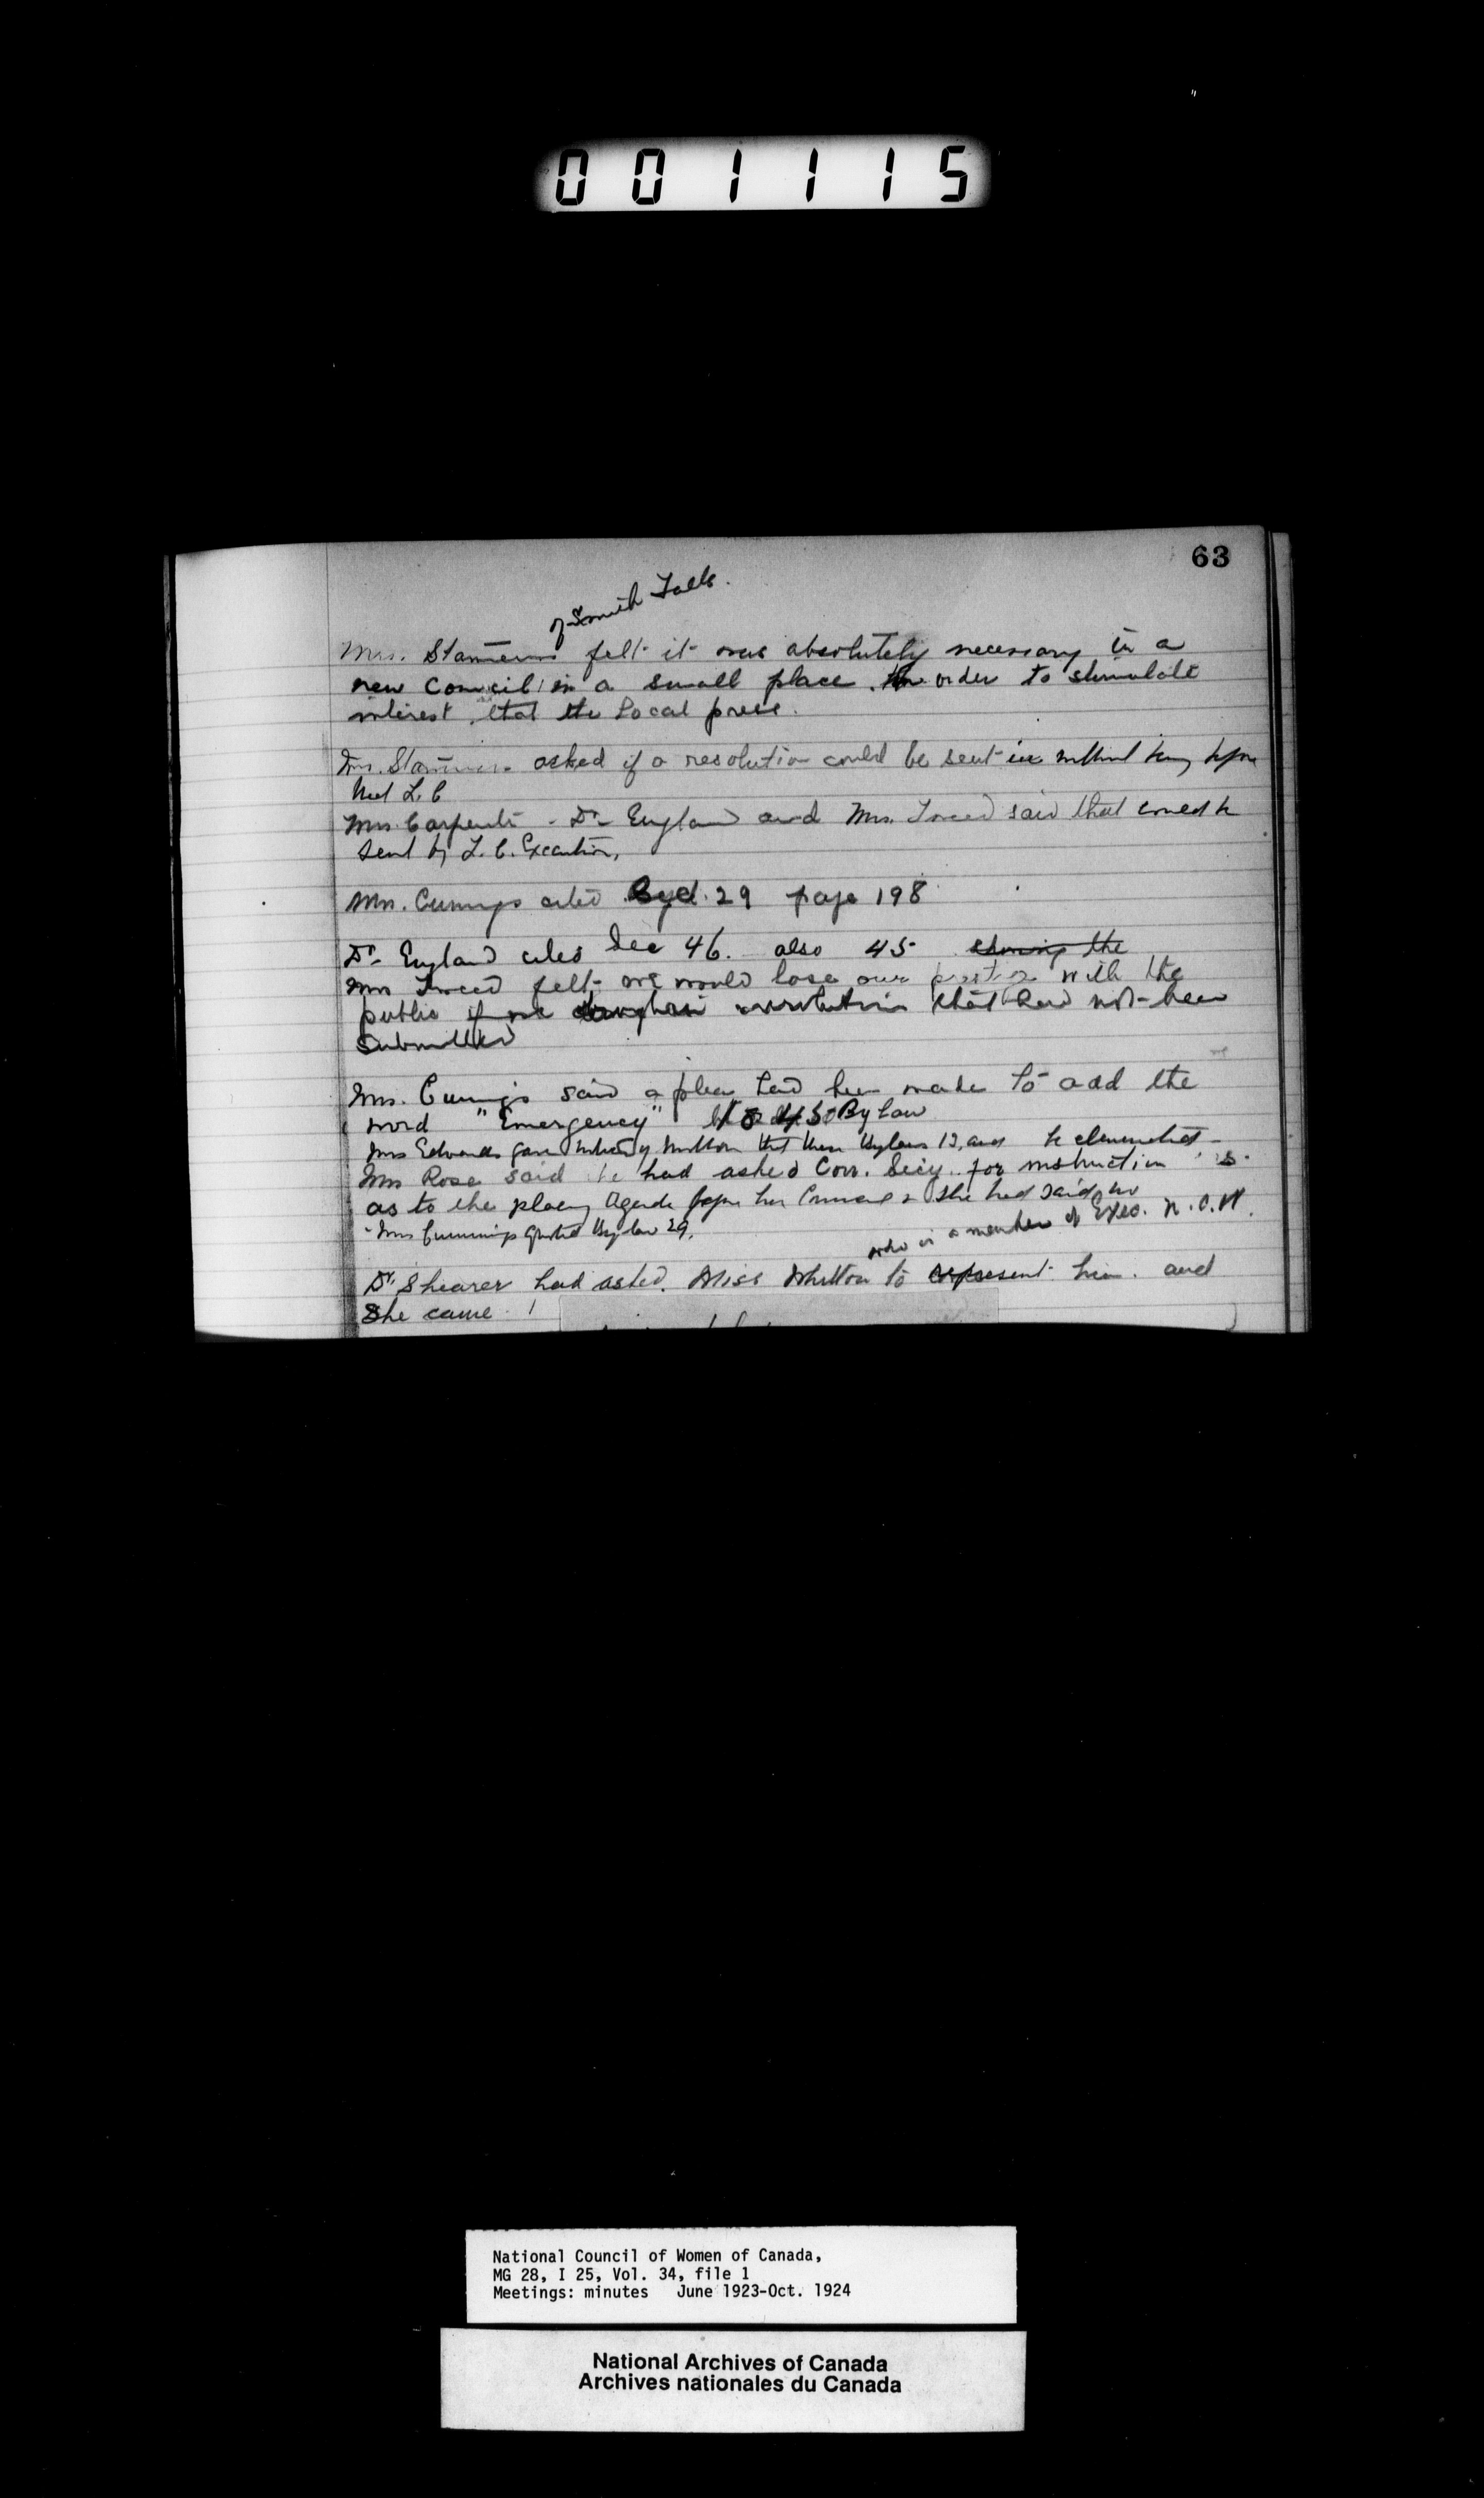 001115
63
of Smith Falls.
Mrs. felt it was absolutely necessary in a
new Council in a small place. In order to stimulate
interest that the Local press.
Mrs. asked if a resolution could be sent in without being before
L. C
Mrs. Carpenter - Dr England and Mrs. said that could be
sent by L. C. Executive,
Mrs. Cumings cited 29 page 198
Dr England cites Sec 46. also 45 the
Mrs felt we would lose our prestige with the
public if we resolutions that had not been
submitted
Mrs. Cumings said a plea had been made to add the
word "Emergency" to 45 By law
Mrs Edwards gave notice of motion that Bylaws 12, and be eliminated
Mrs Rose said he had asked Corr. Secy. for instruction s.
as to the placing Agenda before her Council & she had said no
- Mrs Cummings quoted By law 29.
who is a member of Exec. N.C.W.
Dr. Shearer had asked. Miss Whitton to represent him. and
She came
National Council of Women of Canada,
MG 28, I 25, Vol. 34, file 1
Meetings: minutes June 1923-Oct. 1924
National Archives of Canada
Archives nationales du Canada